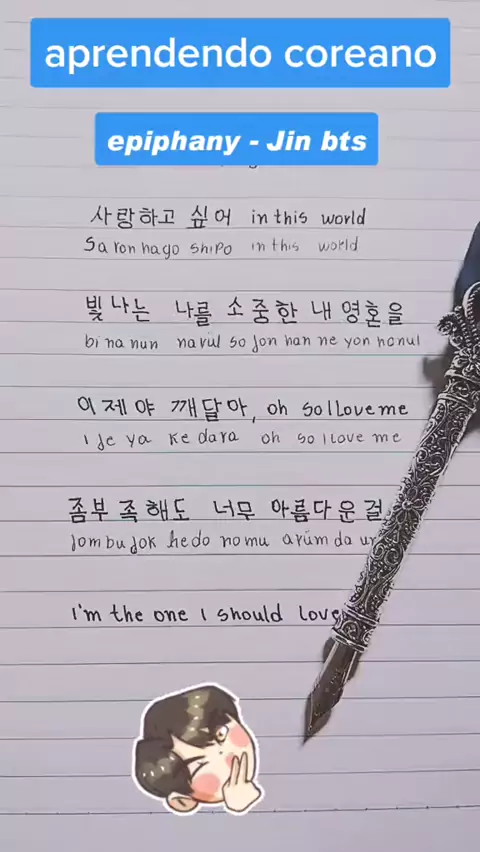 aprendendo coreano
epiphany - Jin bts
사랑하고 싶어 in this world
Sa ron hago shipo in this world
빛나는 나를 소중한 내 영혼을
bi na nun narül so jon han ne yon honul
이제야 깨달아, oh so I Love me
i je ya ke dara oh so I love me
좀부족해도 너무 아름다운 걸
Jom bu jok hedo nomu arüm da un
I'm the one I should love